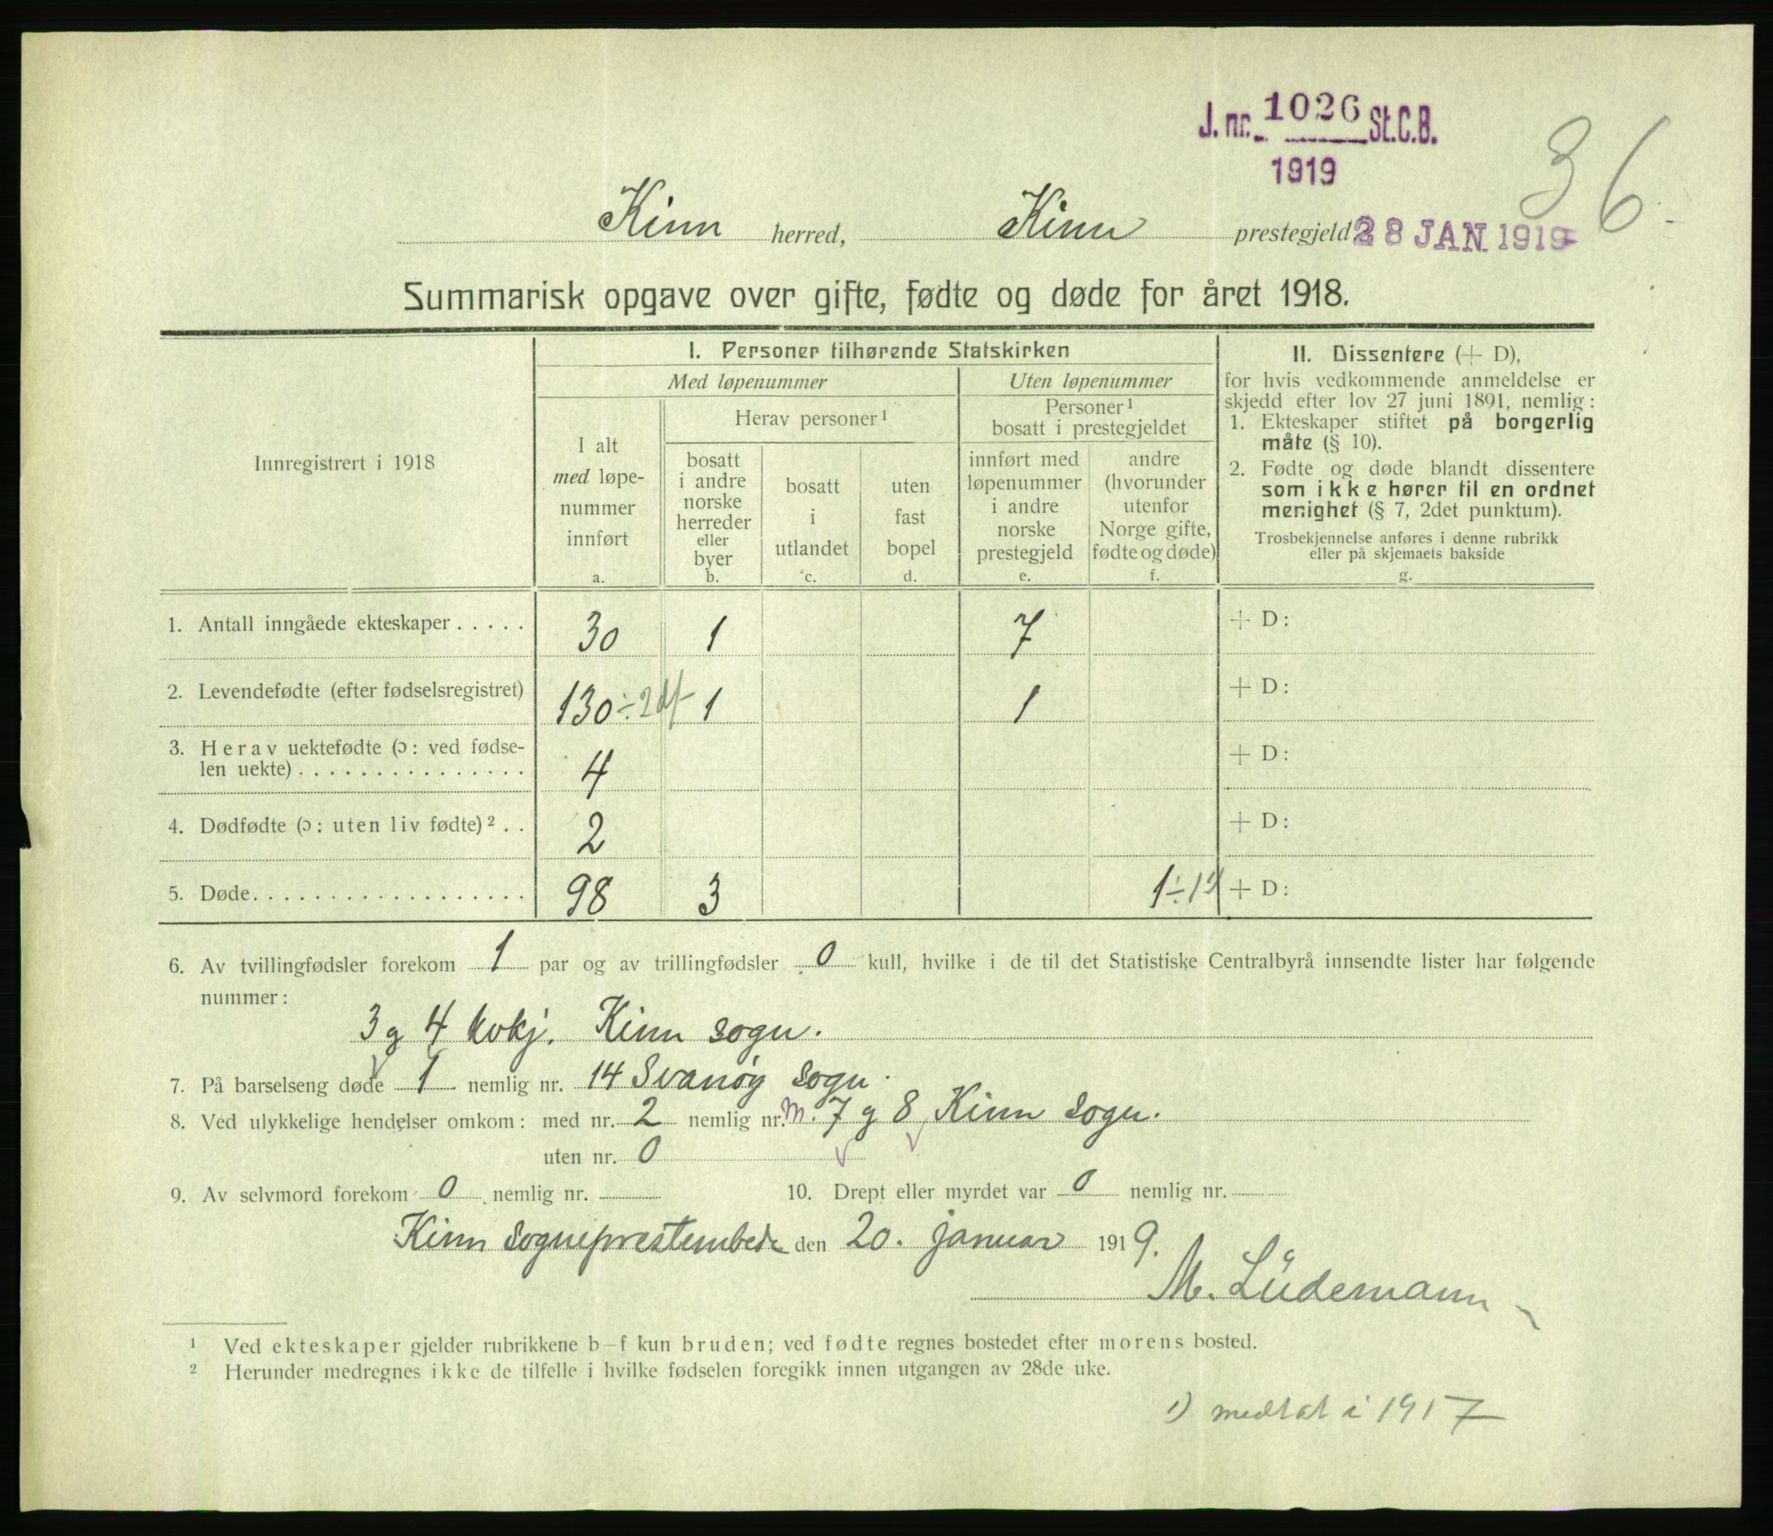 J. nr. 1026 St.C.B.
1919
36
Kinn herred, Kinn prestegjeld 28 JAN. 1919
Summarisk opgave over gifte, fødte og døde for året 1918.
Innregistrert i 1918
I. Personer tilhørende Statskirken
Med løpenummer
Uten løpenummer
I alt
med løpe-
nummer
innført
a.
Herav personer¹
bosatt
i andre
norske
herreder
eller
byer
b.
bosatt
i
utlandet
c.
uten
fast
bopel
d.
Personer¹
bosatt i prestegjeldet
innført med
løpenummer
i andre
norske
prestegjeld
e.
andre
(hvorunder
utenfor
Norge gifte,
fødte og døde)
f.
II. Dissentere (+ D),
for hvis vedkommende anmeldelse er
skjedd efter lov 27 juni 1891, nemlig:
1. Ekteskaper stiftet på borgerlig
måte (§ 10).
2. Fødte og døde blandt dissentere
som ikke hører til en ordnet
menighet (§ 7, 2det punktum).
Trosbekjennelse anføres i denne rubrikk
eller på skjemaets bakside
g.
1. Antall inngåede ekteskaper . . . . . 30 1 7 + D:
2. Levendefødte (efter fødselsregistret) 130 ÷ 2 df 1 1 + D:
3. Herav uektefødte (ɔ: ved fødse-
len uekte) . . . . . . . . . . . . . . . 4 + D:
4. Dødfødte (ɔ: uten liv fødte)² . . 2 + D:
5. Døde. . . . . . . . . . . . . . . . . . 98 3 1 ÷ 1 ¹) + D:
6. Av tvillingfødsler forekom 1 par og av trillingfødsler 0 kull, hvilke i de til det Statistiske Centralbyrå innsendte lister har følgende
nummer:
3 g 4 kvkj. Kinn sogn.
7. På barselseng døde 1 nemlig nr. 14 Svanøy sogn.
8. Ved ulykkelige hendelser omkom: med nr. 2 nemlig nr. m. 7 g 8 Kinn sogn.
uten nr. 0
9. Av selvmord forekom 0 nemlig nr.
10. Drept eller myrdet var 0 nemlig nr.
Kinn sogneprestembede den 20. januar 1919.
M. Lüdemann
¹ Ved ekteskaper gjelder rubrikkene b–f kun bruden; ved fødte regnes bostedet efter morens bosted.
² Herunder medregnes ikke de tilfelle i hvilke fødselen foregikk innen utgangen av 28de uke.
1) medtat i 1917